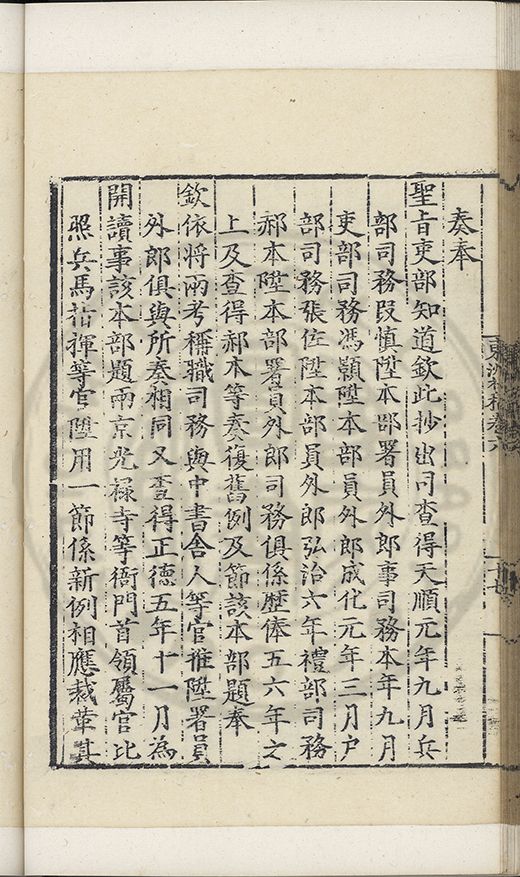 奏奉
聖旨吏部知道欽此抄出司查得天順元年九月兵
部司務段慎陞本部署員外郎事司務本年九月
吏部司務馮顥陞本部員外郎成化元年三月户
部司務張佐陞本部員外郎弘治六年禮部司務
郝本陞本部署員外郎司務俱係歷俸五六年之
上及查得郝本等奏復舊例及節該本部題奉
欽依將兩考稱職司務與中書舍人等官推陞署員
外郎俱與所奏相同又查得正德五年十一月為
開讀事該本部題兩京光禄寺等衙門首領屬官比
照兵馬指揮等官陞用一節係新例相應裁革其